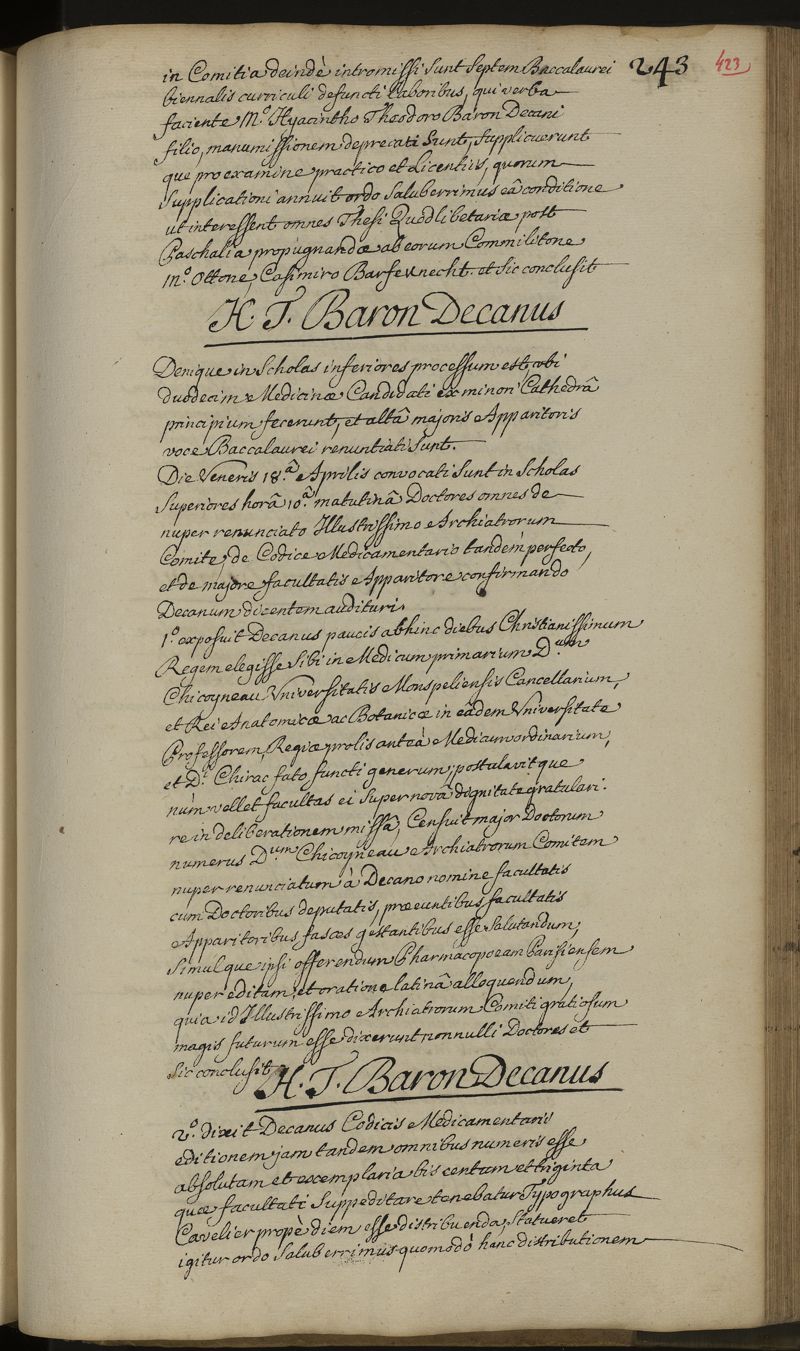 243
423
in Comitia deindè intromissi sunt septem Baccalaurei
biennalis curriculi defuncti laboribus, qui verba
faciente M.º Hyacintho Theodoro Baron Decani
filio, manumissionem deprecati sunt, supplicuerunt
que pro examine practico et Licentiis, quorum
supplicationi annuit ordo saluberrimus eâ conditione
ut interessent omnes Thesi Quodlibetariæ post
Paschalia propugnandæ ab eorum Commilitone
M.º Ottone, Casimiro Barfeknecht. et sic conclusit
H. T. Baron Decanus
Denique in Scholas inferiores processum est, ubi
duodecim Medicinæ Candidati ex minori Cathedrâ
principium fecerunt, et altâ majoris Apparitoris
voce Baccalaurei renuntiati sunt.
Die Veneris 18.â Aprilis convocati sunt in Scholas
Superiores horâ 10.â matutinâ Doctores omnes de
nuper renunciato Illustrissimo Archiatrorum
Comite, de Codice Medicamentario tandem perfecto,
et de majore facultatis Apparitore confirmando
Decanum dicentem audituri.
1.º exposuit Decanus paucis abhinc diebus Christianissimum
Regem elegisse sibi in Medicum primarium D.um
Chicoyneau Universitatis Monspeliensis Cancellarium,
et Rei Anatomicæ ac Botanicæ in eâdem Universitate
Professorem, Regiæ prolis anteà Medicum ordinarium,
et D.i Chirac fato functi generum; postulavitque
nùm vellet facultas ei super novâ dignitate gratulari.
re in deliberationem missâ, Censuit major Doctorum
numerus D.um Chicoyneau Archiatrorum Comitem
nuper renunciatum à Decano nomine facultatis
cum Doctoribus deputatis, præeuntibus facultatis
Apparitoribus fasces gestantibus esse salutandum;
Simulque ipsi offerendum Pharmacopoeam Parisiensem
nuper editam, et oratione latinâ alloquendum,
quia id Illustrissimo Archiatrorum Comiti gratiosum
magis futurum esse dixerunt nonnulli Doctores et
sic conclusit
H. T. Baron Decanus
2.º dixit Decanus Codicis Medicamentarii
editionem jam tandem omnibus numeris esse
absolutam et exemplaria bis centum et triginta
quæ facultati suppeditare tenebatur Typographus
Cavelier propè diem esse distribuenda; Statueret
igitur ordo saluberrimus quomodò hanc distributionem